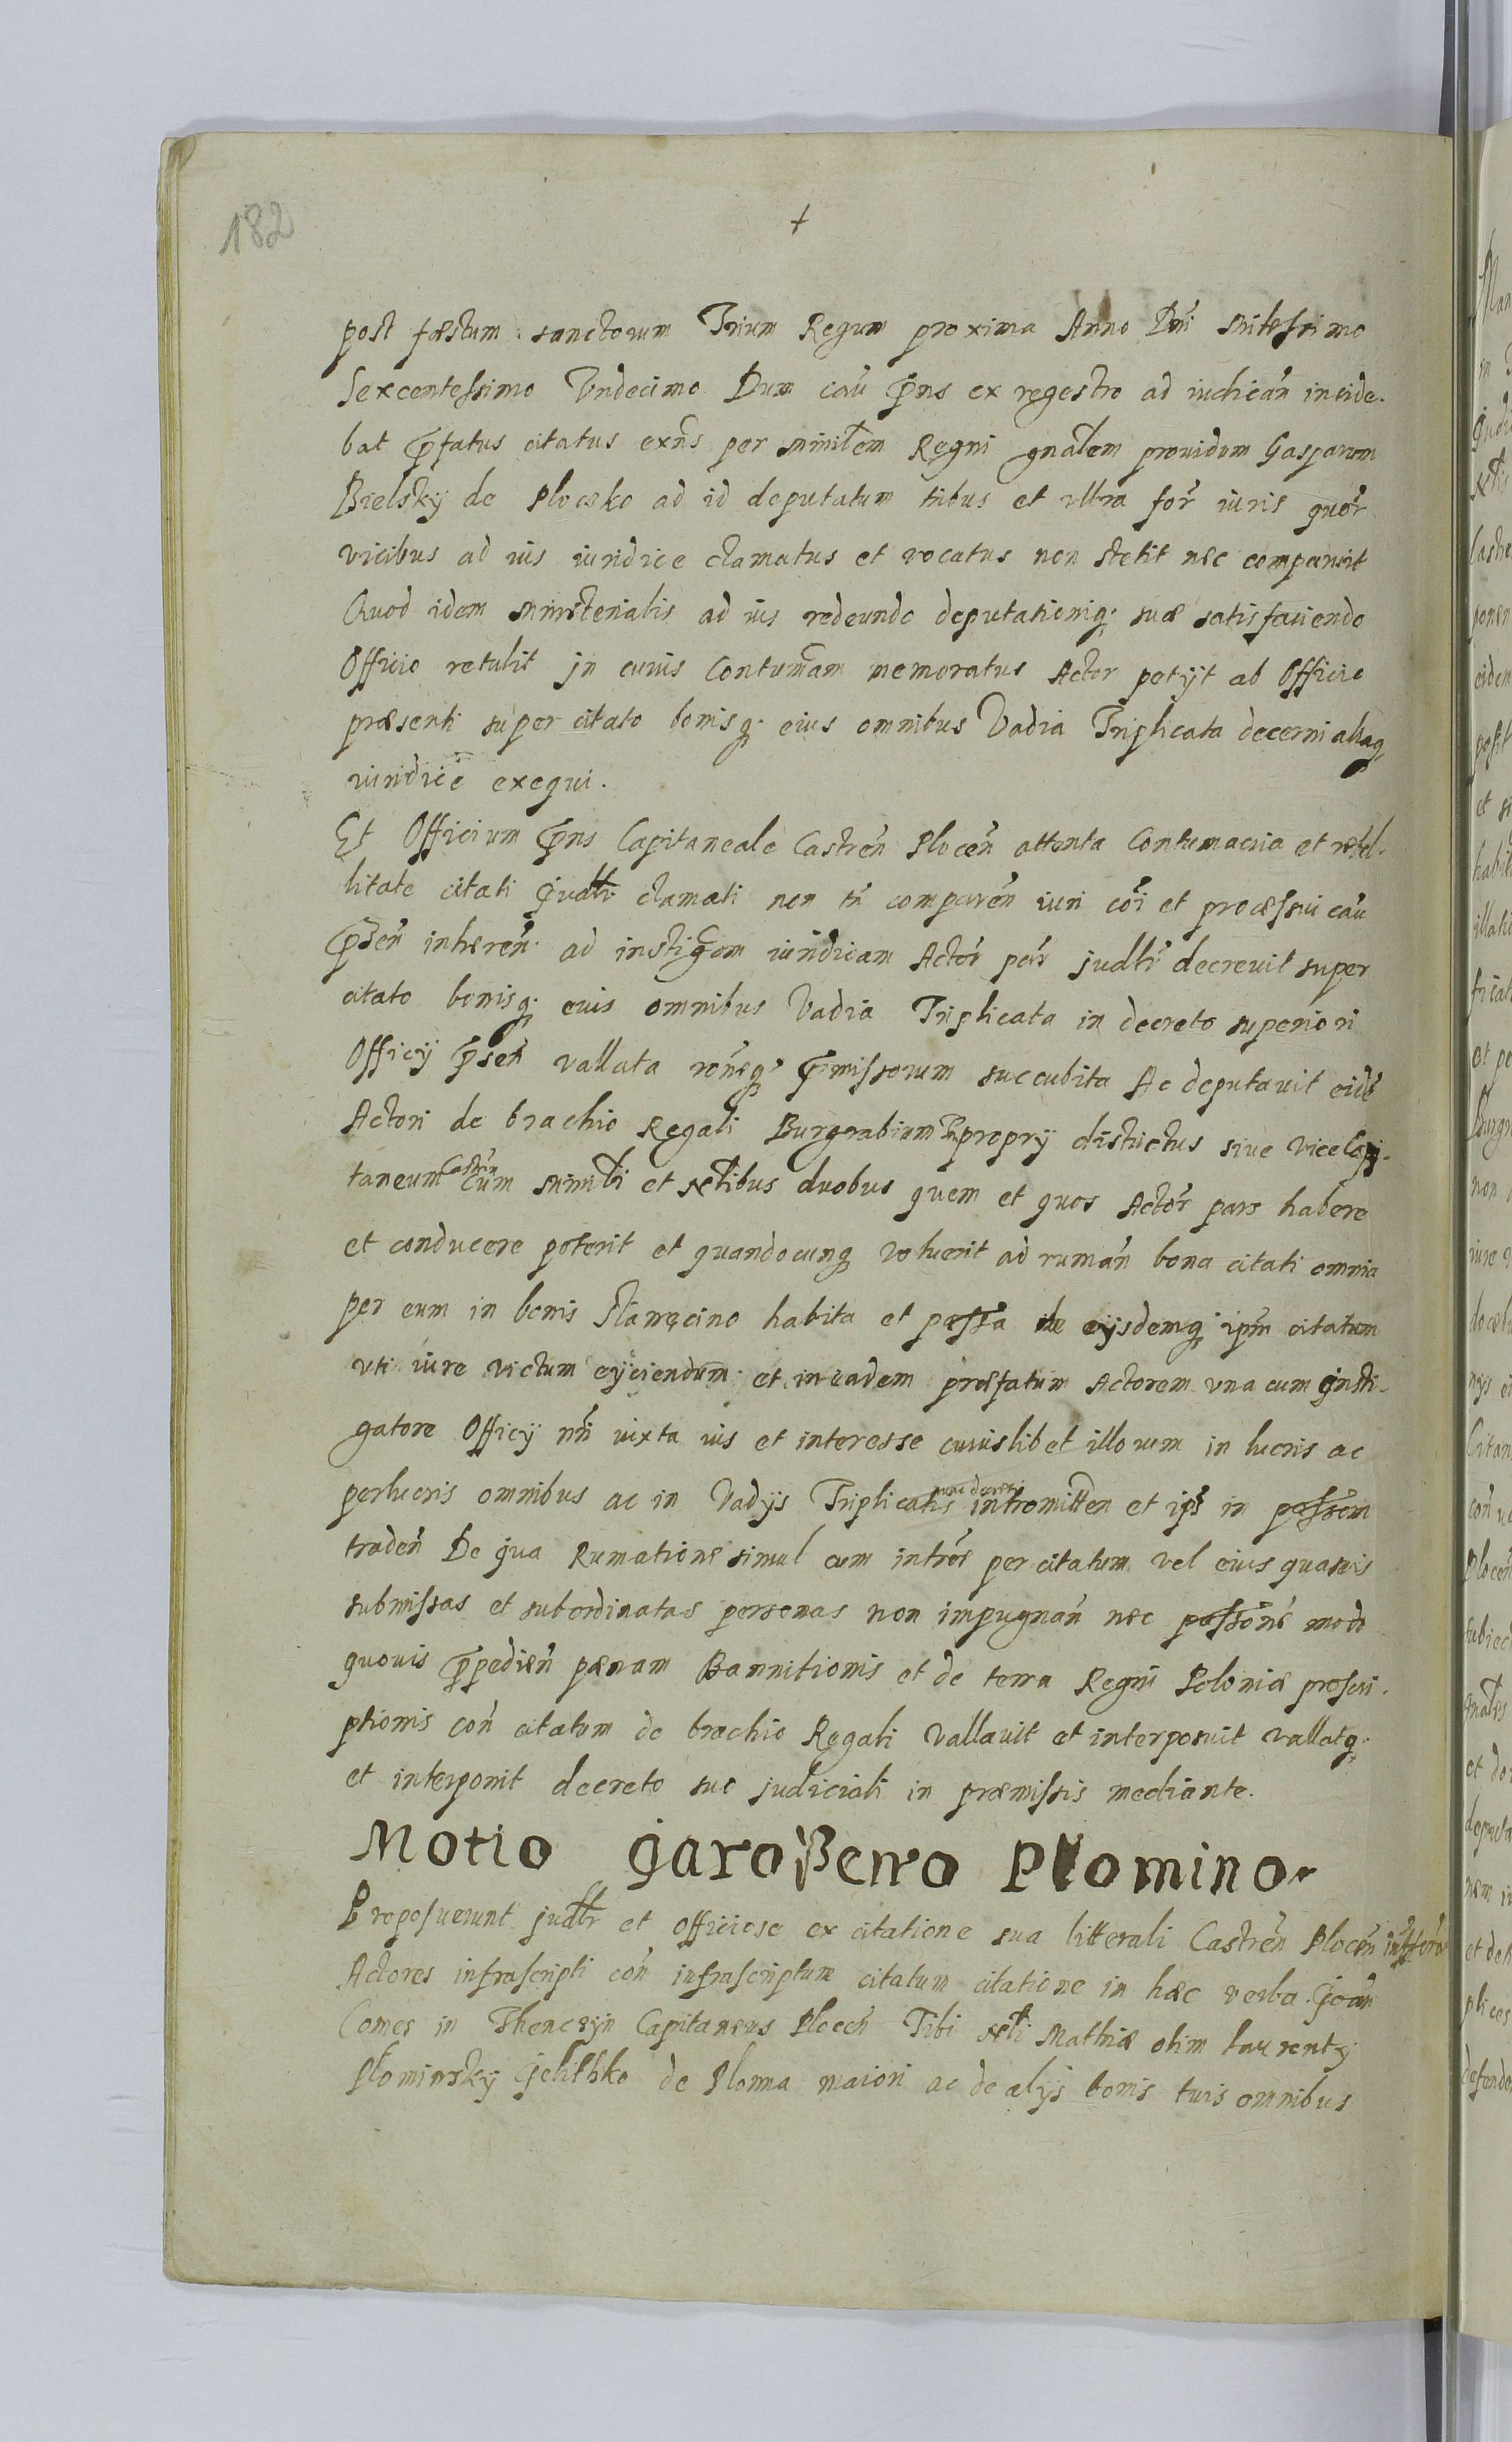 182
+
post fæstum sanctorum Trium Regum proxima Anno Dni Millessimo
Sexcentessimo Undecimo Dum cau pns ex regestro ad iudican incide-
bat pfatus citatus exns per minilem Regni gnalem prouidum Gasparum
Bielsky de Plocsko ad id deputatum tribus et ultra for iuris quor
vicibus ad ius iuridice clamatus et vocatus non stetit nec comparuit
Quod idem ministerialis ad ius redeundo deputationiq suæ satisfaciendo
Officio retulit in cuius Contumam memoratus Actor petÿt ab Officio
præsenti super citato bonisq eius omnibus Vadia Triplicata decerni aliaq
iuridice exequi.
Et Officium pns Capitaneale Castren Plocen attenta Contumacia et rebel-
litate citati Judtr clamati non tn comparen iuri coi et processui cau
psen inhæren ad instigom iuridicam Actor par judtr decreuit super
citato bonisq eius omnibus Vadia Triplicata in decreto superiori
Officÿ psen vallata roneq pmissorum succubita Ac deputauit eide
Actori de brachio Regali Burgrabium proprÿ districtus siue ViceCapi-
taneum Castren cum minili et nlibus duobus quem et quos Actor pars habere
et conducere poterit et quandocunq voluerit ad ruman bona citati omnia
per eum in bonis habita et possa de eÿsdemq ipm citatum
uti iure victum eÿciendum et in eadem præfatum Actorem una cum Insti-
gatore Officÿ nri iuxta ius et interesse cuiuslibet illorum in lucris ac
perlucris omnibus ac in Vadÿs Triplicatis intromitten et ips in possom
traden De qua Rumatione simul cum intror per citatum vel eius quasuis
submissas et subordinatas personas non impugnan nec possone modo
quouis ppedien pænam Bannitionis et de terra Regni Poloniæ proscri-
ptionis con citatum de brachio Regali vallauit et interposuit vallatq
et interponit decreto suo judiciali in præmissis mediante.
Motio Jaroßewo Plomino
Proposuerunt judtr et officiose ex citatione sua litterali Castren Plocen
Actores infrascripti con infrascriptum citatum citatione in hæc verba. Joan
Comes in Thenczÿn Capitaneus Plocen Tibi nli Mathiæ olim Laurentÿ
Plominskÿ de Plonna maiori ac de alÿs bonis tuis omnibus